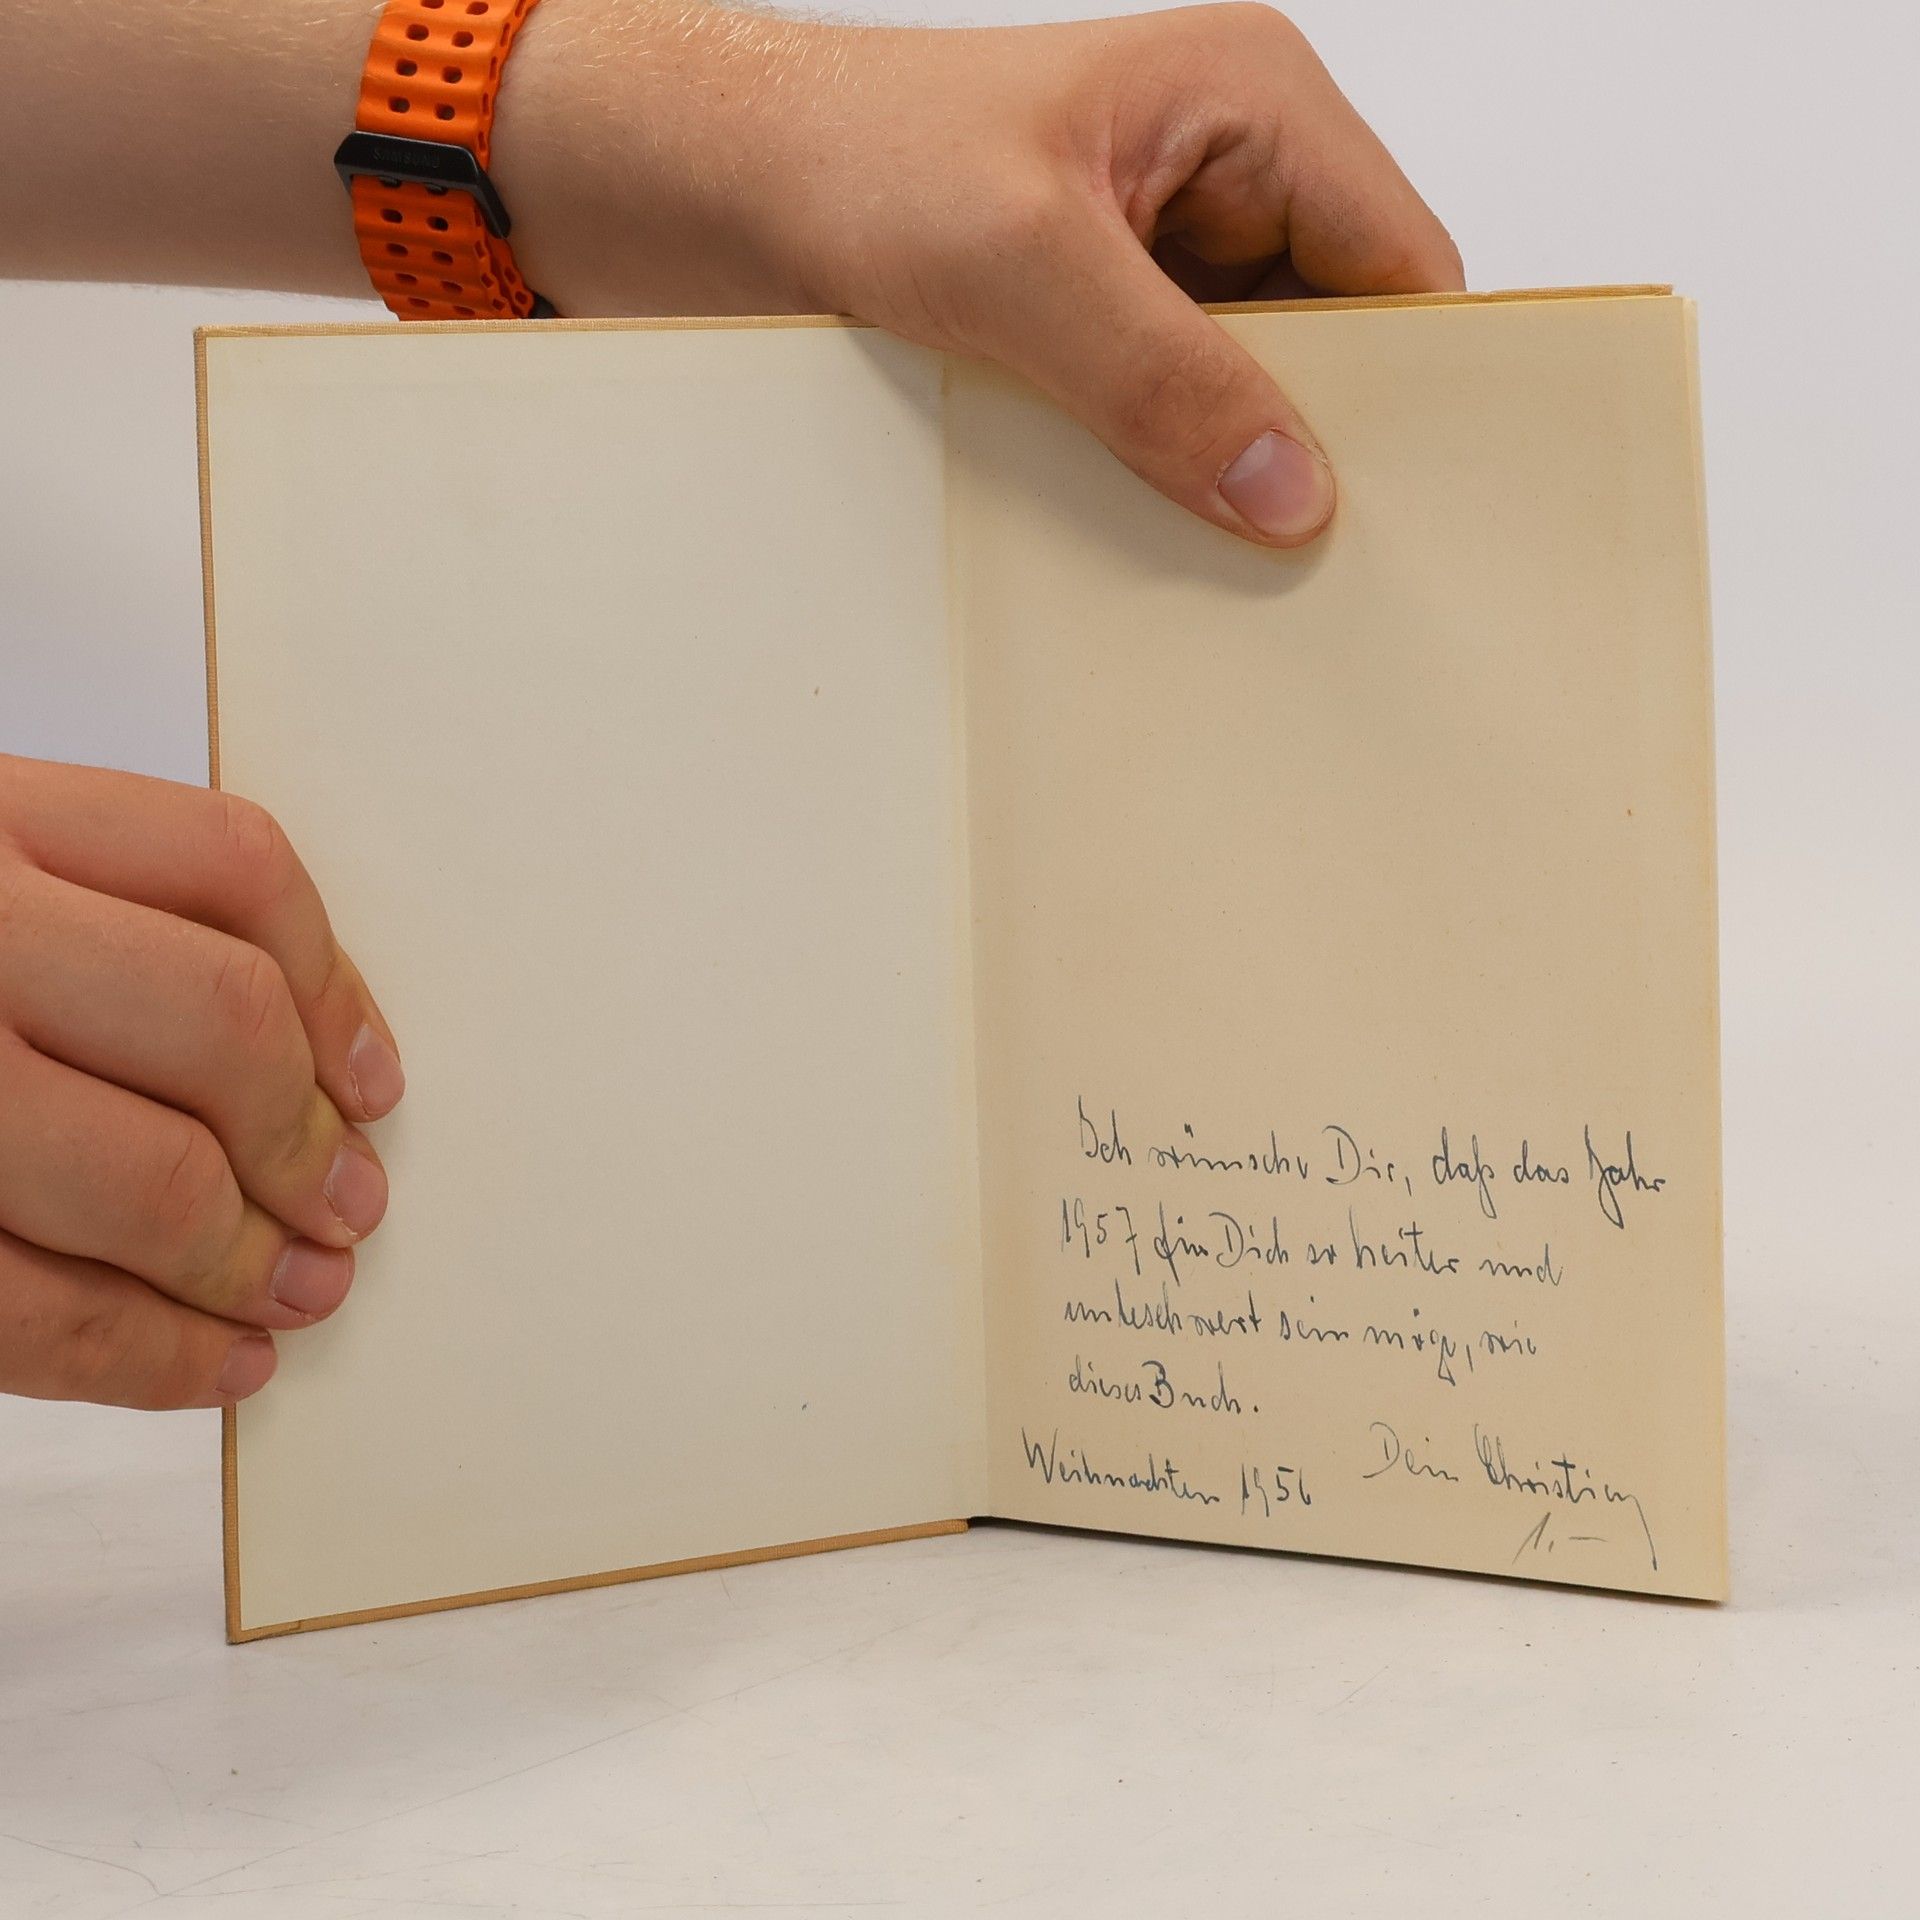 SAMSUNG
Ich wünsche Dir, daß das Jahr
1957 für Dich so heiter und
unbeschwert sein möge, wie
dieses Buch.
Dein Christian
Weihnachten 1956
1.–